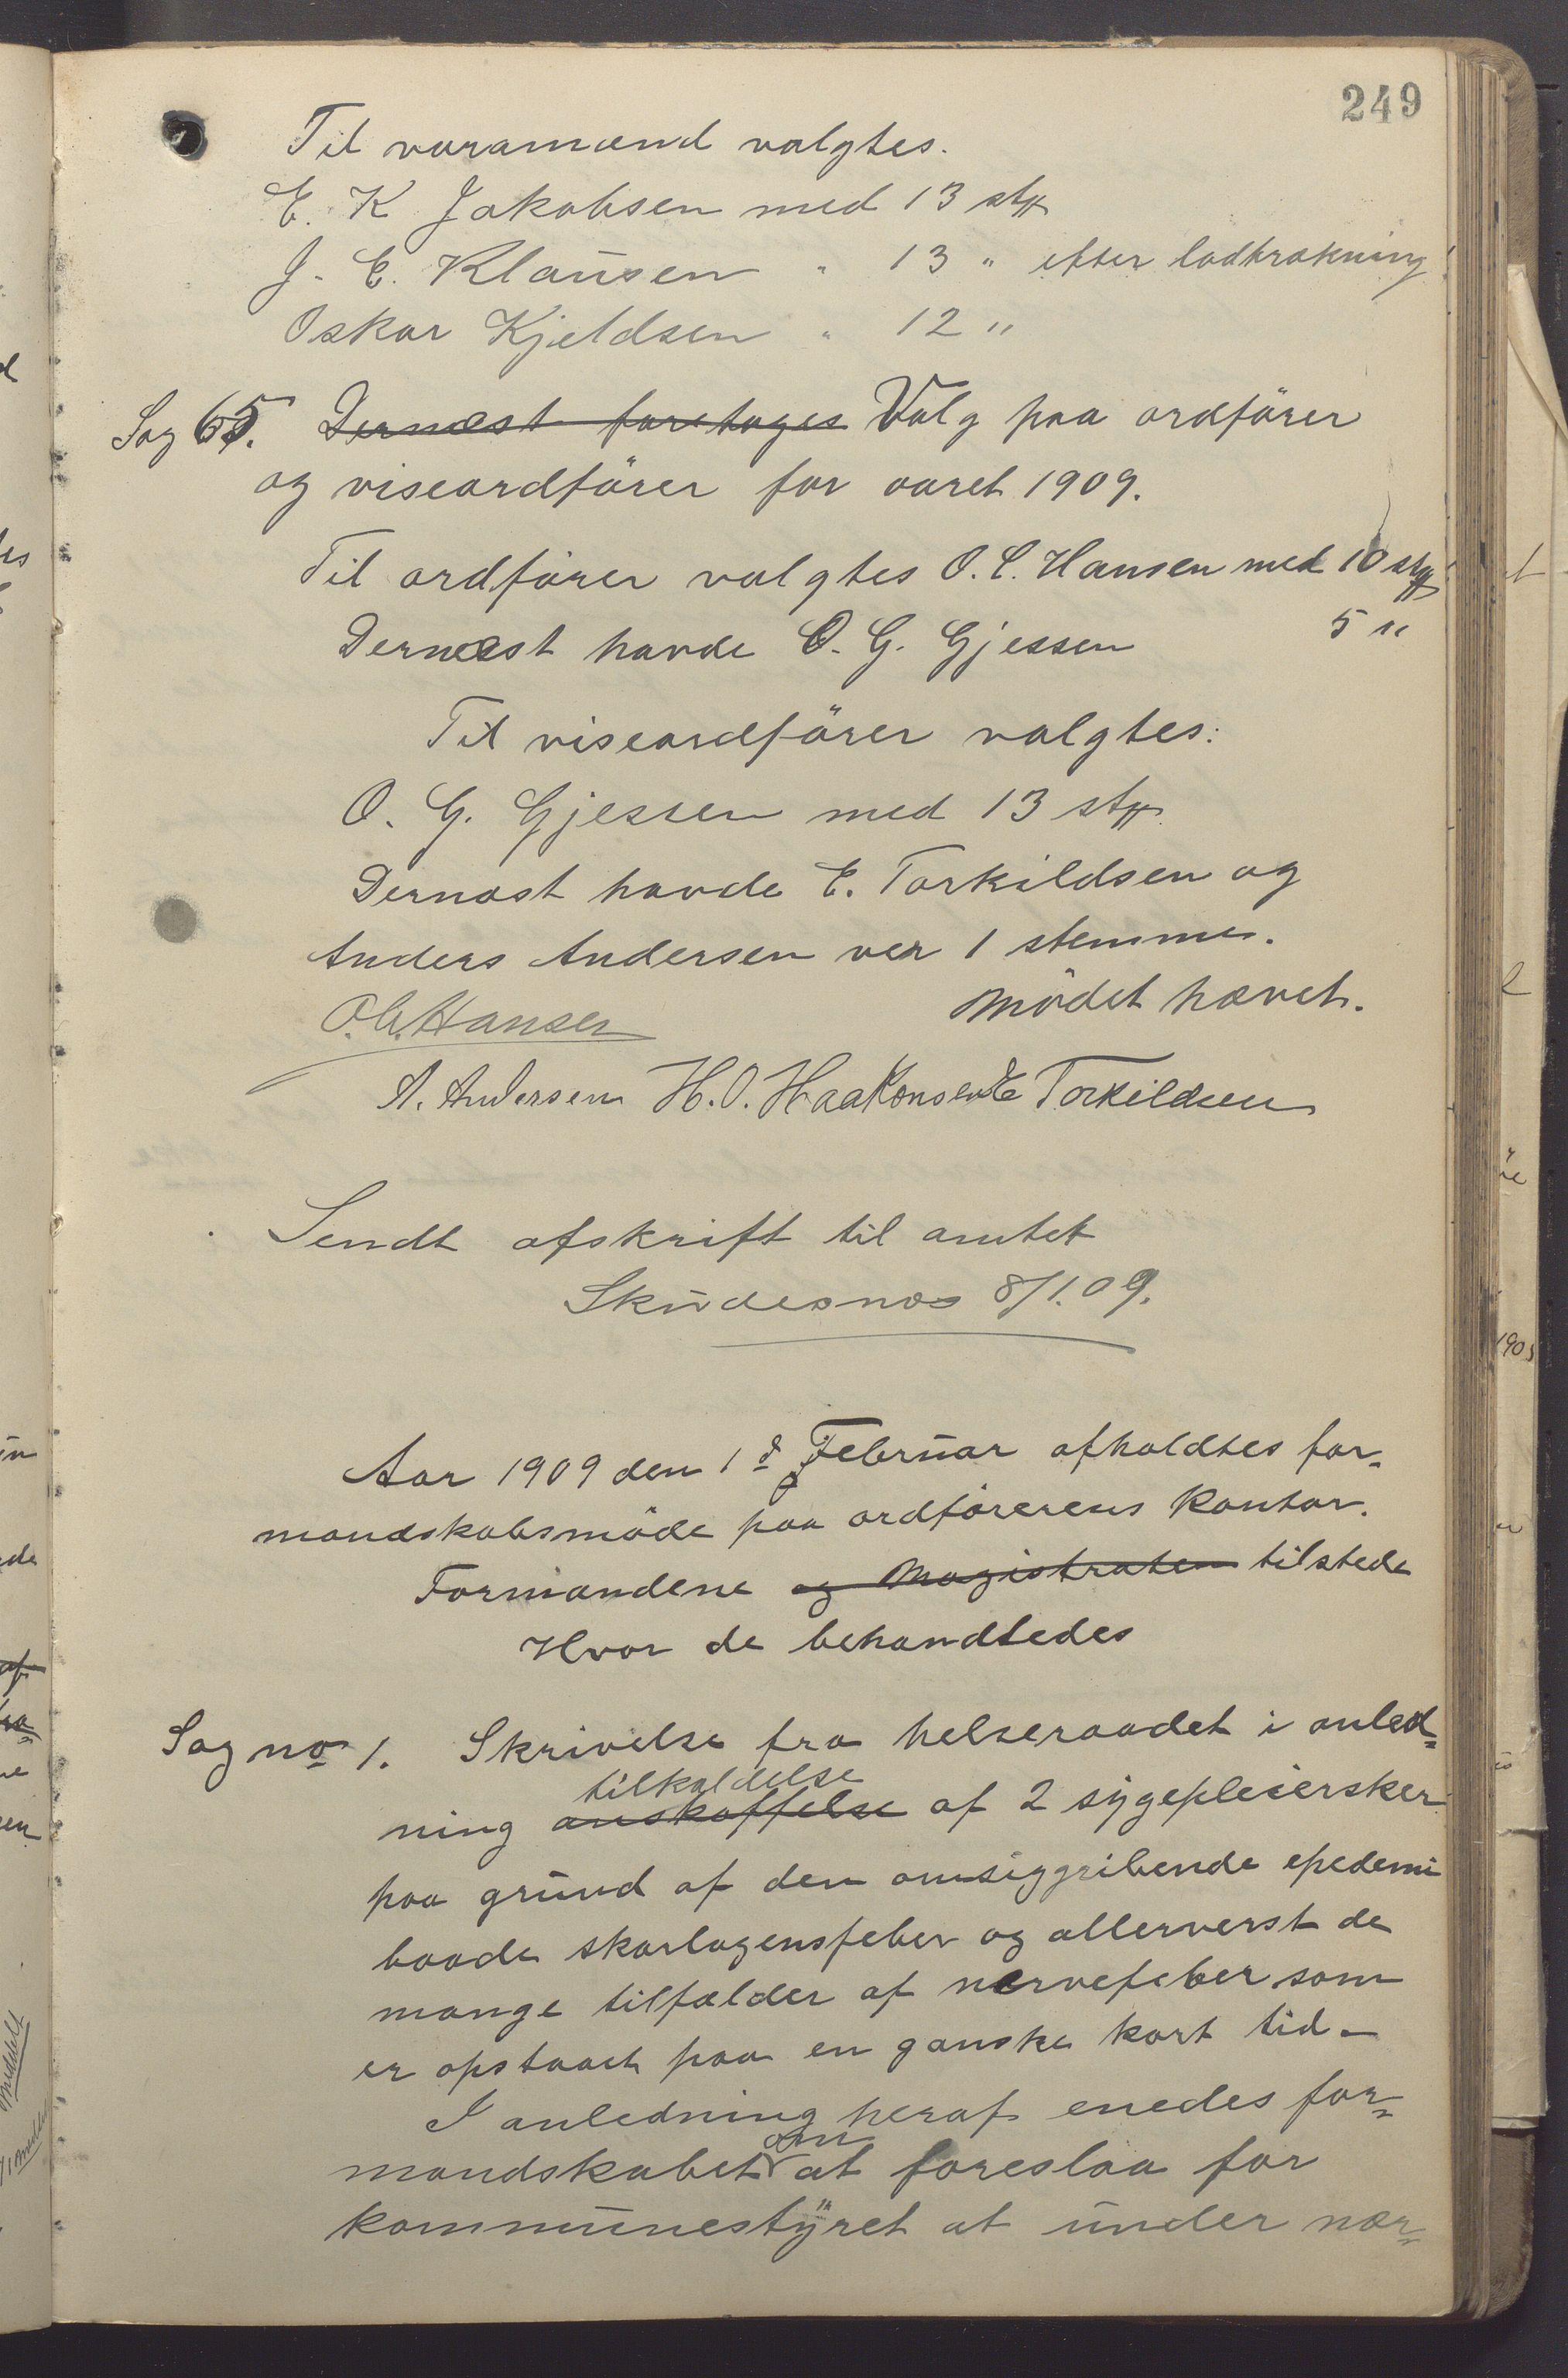 249
Til varamænd valgtes.
E. K Jakobsen med 13 st
J. E. Klausen " 13 " efter lodtrækning
Oskar Kjeldsen " 12 "
Sag 65. Dernæst foretages Valg paa ordförer
og viseordförer for aaret 1909.
Til ordförer valgtes O. C. Hansen med 10 st
Dernæst havde O. G. Gjessen 5 "
Til viseordförer valgtes:
O. G. Gjessen med 13 st
Dernæst havde E. Torkildsen og
Anders Andersen ver 1 stemme.
Mödet hævet.
O. C. Hansen
A. Andersen H. O. Haakonsen E Torkildsen
Sendt afskrift til amtet
Skudesnæs 8/1.09.
Aar 1909 den 1ḏ Februar afholdtes for-
mandskabsmöde paa ordförerens Kontor.
Formændene og Magistraten tilstede
Hvor de behandledes
Sag no 1. Skrivelse fra helseraadet i anled-
tilkaldelse
ning anskaffelse af 2 sygepleiersker
paa grund af den omsiggribende epedemi
baade skarlagensfeber og allerverst de
mange tilfælder af nervefeber som
er opstaaet paa en ganske kort tid -
I anledning heraf enedes for-
om
mandskabet at foreslaa for
kommunestyret at under nær-